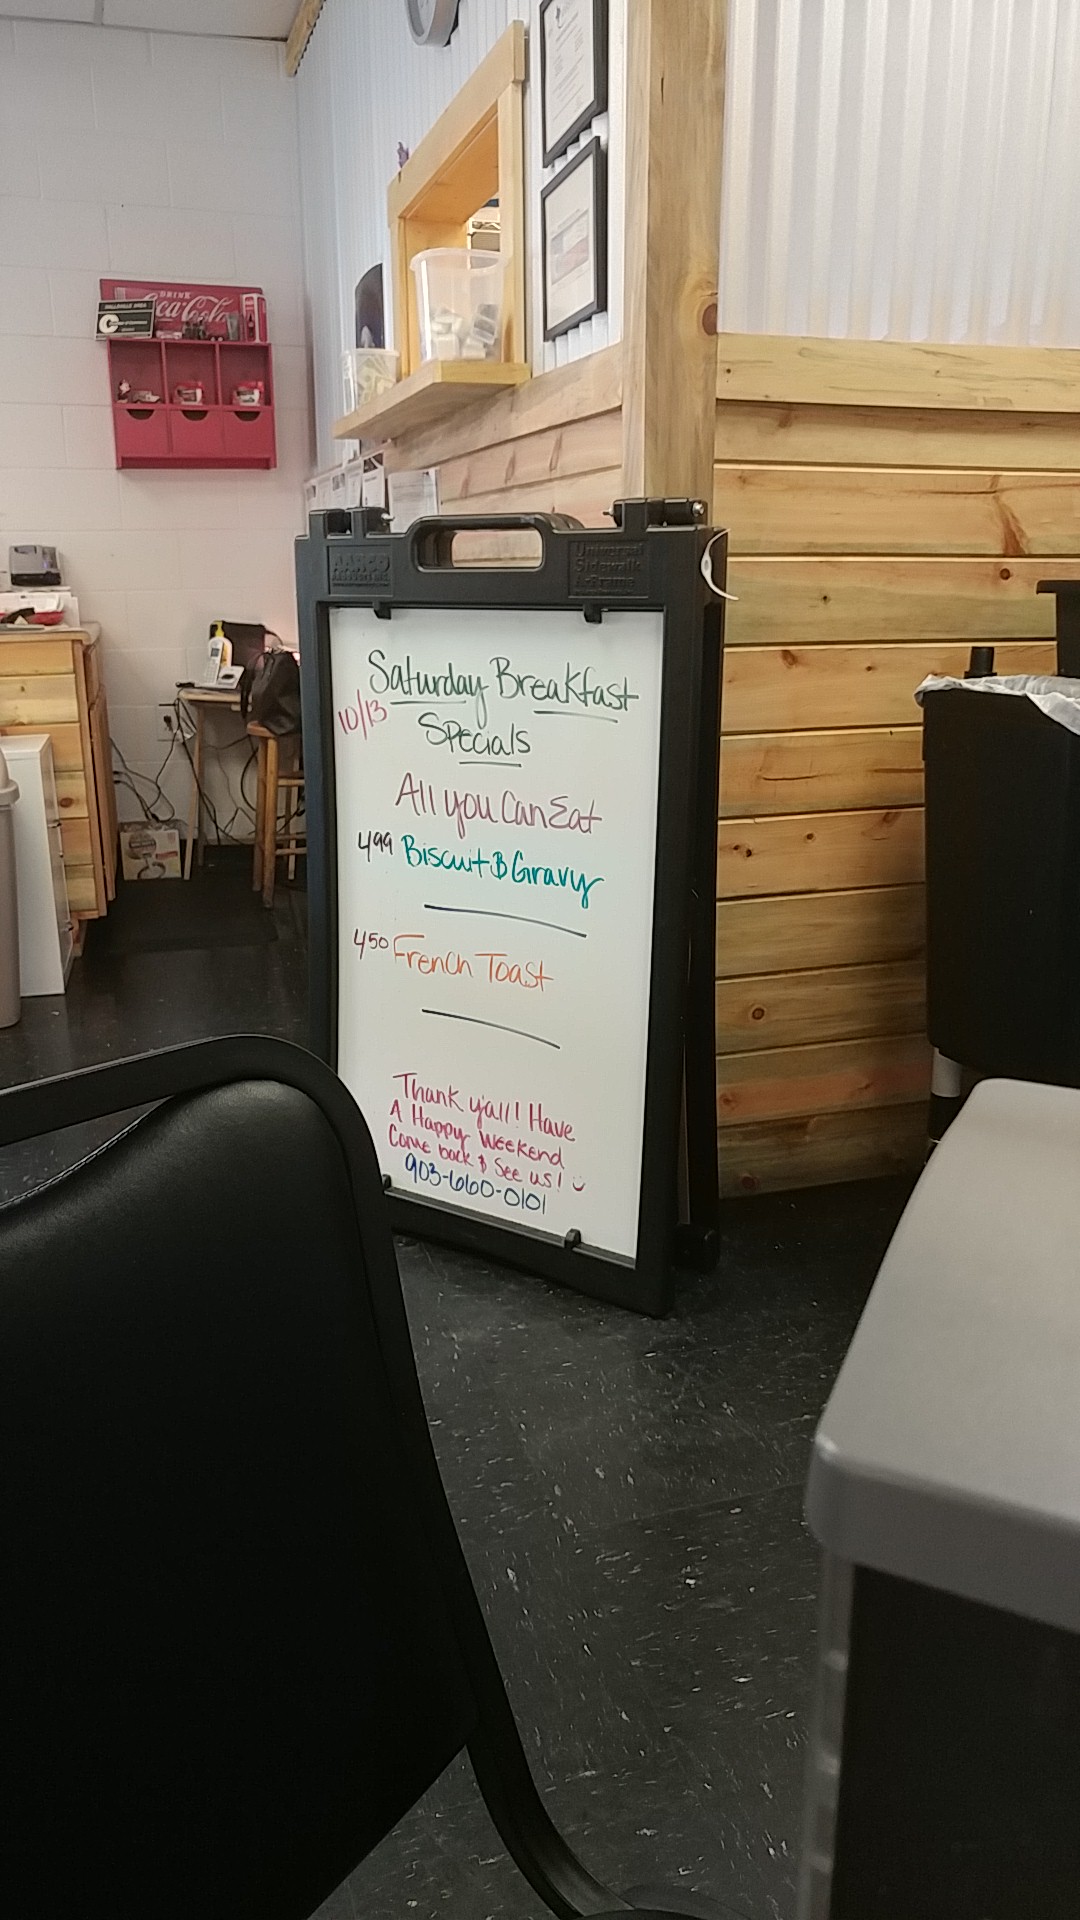 DRINK
Coca-Cola
AARCO
Universal
Sidewalk
A-Frame
Saturday Breakfast
10/13
Specials
All you Can Eat
499 Biscuit & Gravy
450 French Toast
Thank y'all! Have
A Happy Weekend
Come back & See us!
903-660-0101